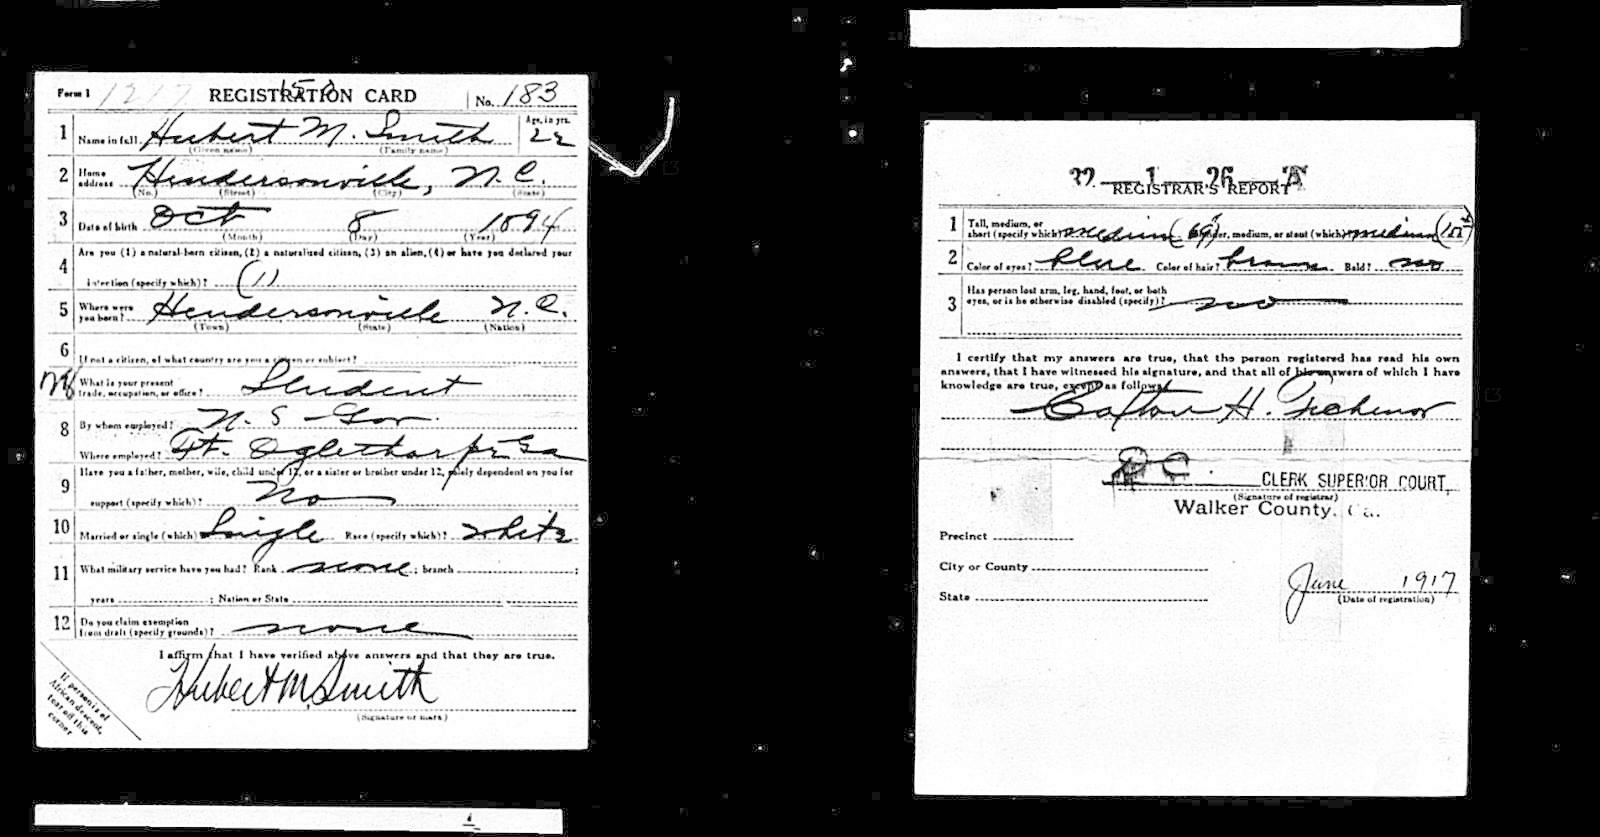 Form 1 1217 REGISTRATION CARD No. 183
1 Name in full Hubert M. Smith Age, in yrs. 22
(Given name) (Family name)
2 Home address Hendersonville, N.C.
(No.) (Street) (City) (State)
3 Date of birth Oct 8 1894
(Month) (Day) (Year)
Are you (1) a natural-born citizen, (2) a naturalized citizen, (3) an alien, (4) or have you declared your
4 intention (specify which)? (1)
5 Where were you born? Hendersonville N.C.
(Town) (State) (Nation)
6 If not a citizen, of what country are you a citizen or subject?
What is your present trade, occupation, or office? Student
8 By whom employed? U. S Gov.
Where employed? Ft. Oglethorpe Ga
Have you a father, mother, wife, child under 12, or a sister or brother under 12, solely dependent on you for
9 support (specify which)? No
10 Married or single (which) Single Race (specify which)? White
11 What military service have you had? Rank none ; branch ;
years ; Nation or State
12 Do you claim exemption from draft (specify grounds)? none
I affirm that I have verified above answers and that they are true.
Hubert M. Smith
(Signature or mark)
If person is of
African descent,
tear off this
corner
REGISTRAR'S REPORT
1 Tall, medium, or short (specify which)? medium Slender, medium, or stout (which)? medium
2 Color of eyes? blue Color of hair? brown Bald? no
3 Has person lost arm, leg, hand, foot, or both eyes, or is he otherwise disabled (specify)? no
I certify that my answers are true, that the person registered has read his own
answers, that I have witnessed his signature, and that all of his answers of which I have
knowledge are true, except as follows:
H. Tichenor
CLERK SUPERIOR COURT,
(Signature of registrar)
Walker County, Ga.
Precinct
City or County
State
June 1917
(Date of registration)